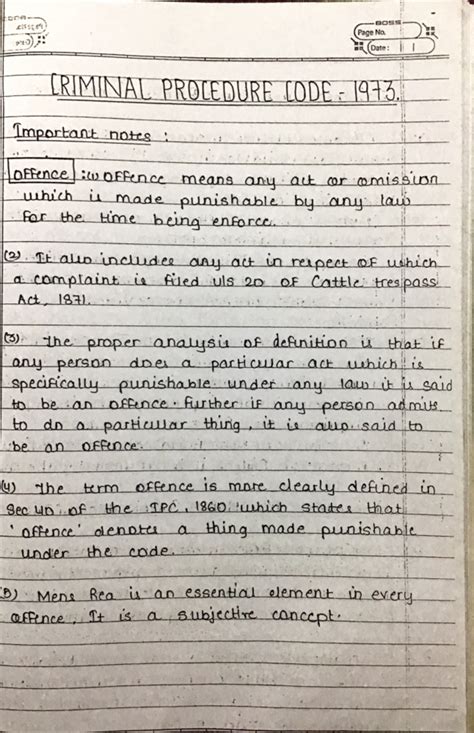 BOSS
Page No.
Date:
CRIMINAL PROCEDURE CODE - 1973.
Important notes :
offence : (1) offence means any act or omission
which is made punishable by any law
for the time being enforce.
(2) It also includes any act in respect of which
a complaint is filed u/s 20 of Cattle trespass
Act, 1871.
(3) The proper analysis of definition is that if
any person does a particular act which is
specifically punishable under any law it is said
to be an offence. further if any person admits
to do a particular thing, it is also said to
be an offence.
(4) The term offence is more clearly defined in
Sec 40 of the IPC, 1860. which states that
'offence' denotes a thing made punishable
under the code.
(5) Mens Rea is an essential element in every
offence, It is a subjective concept.